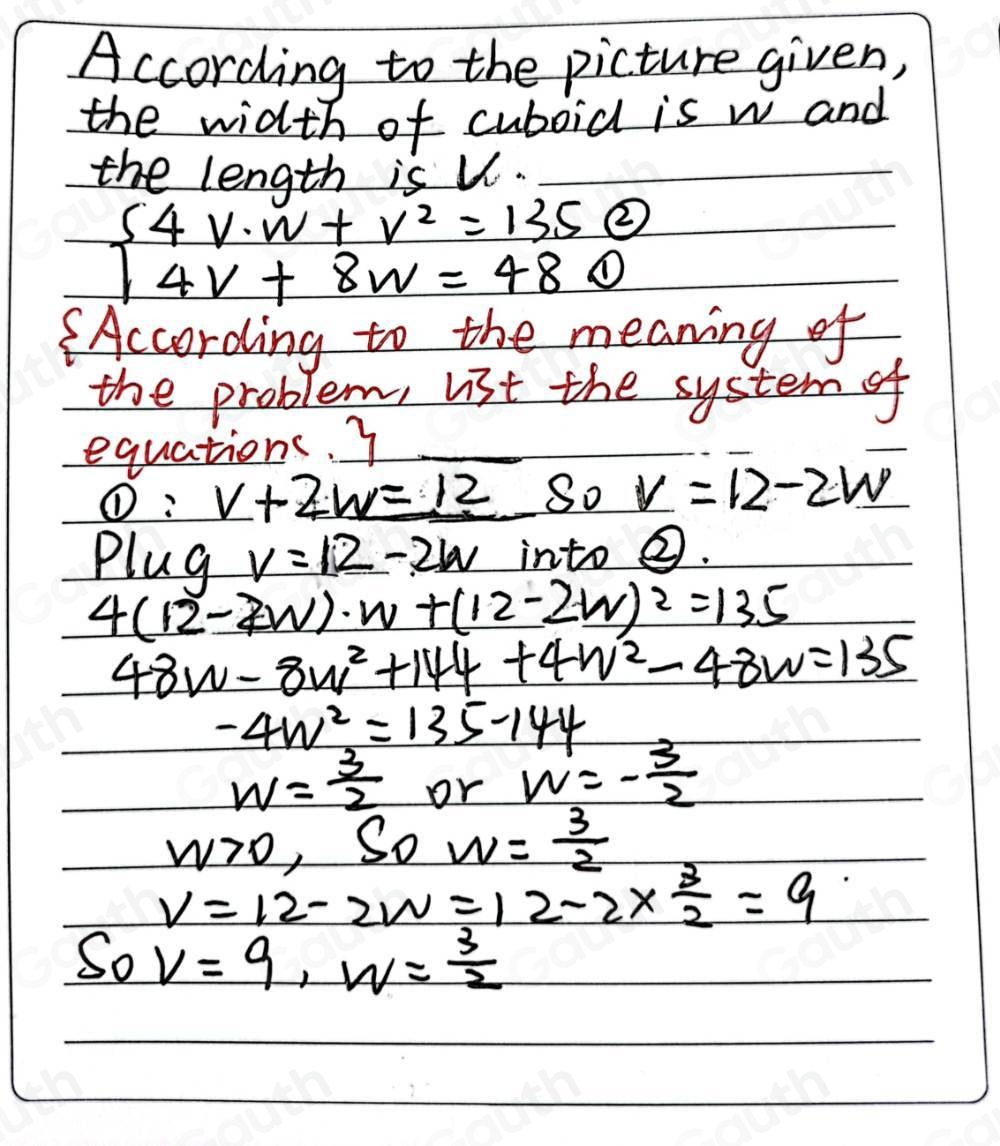 According to the picture given,
the width of cuboid is w and
the length is V.
{4 V·W + V² = 135 ②
4V + 8W = 48 ①
{According to the meaning of
the problem, list the system of
equations.}
①: V+2W=12 So V=12-2W
Plug V=12-2W into ②.
4(12-2W)·W+(12-2W)²=135
48W-8W²+144+4W²-48W=135
-4W²=135-144
W=3/2 or W=-3/2
W>0, So W=3/2
V=12-2W=12-2×3/2=9
So V=9, W=3/2
Gauth